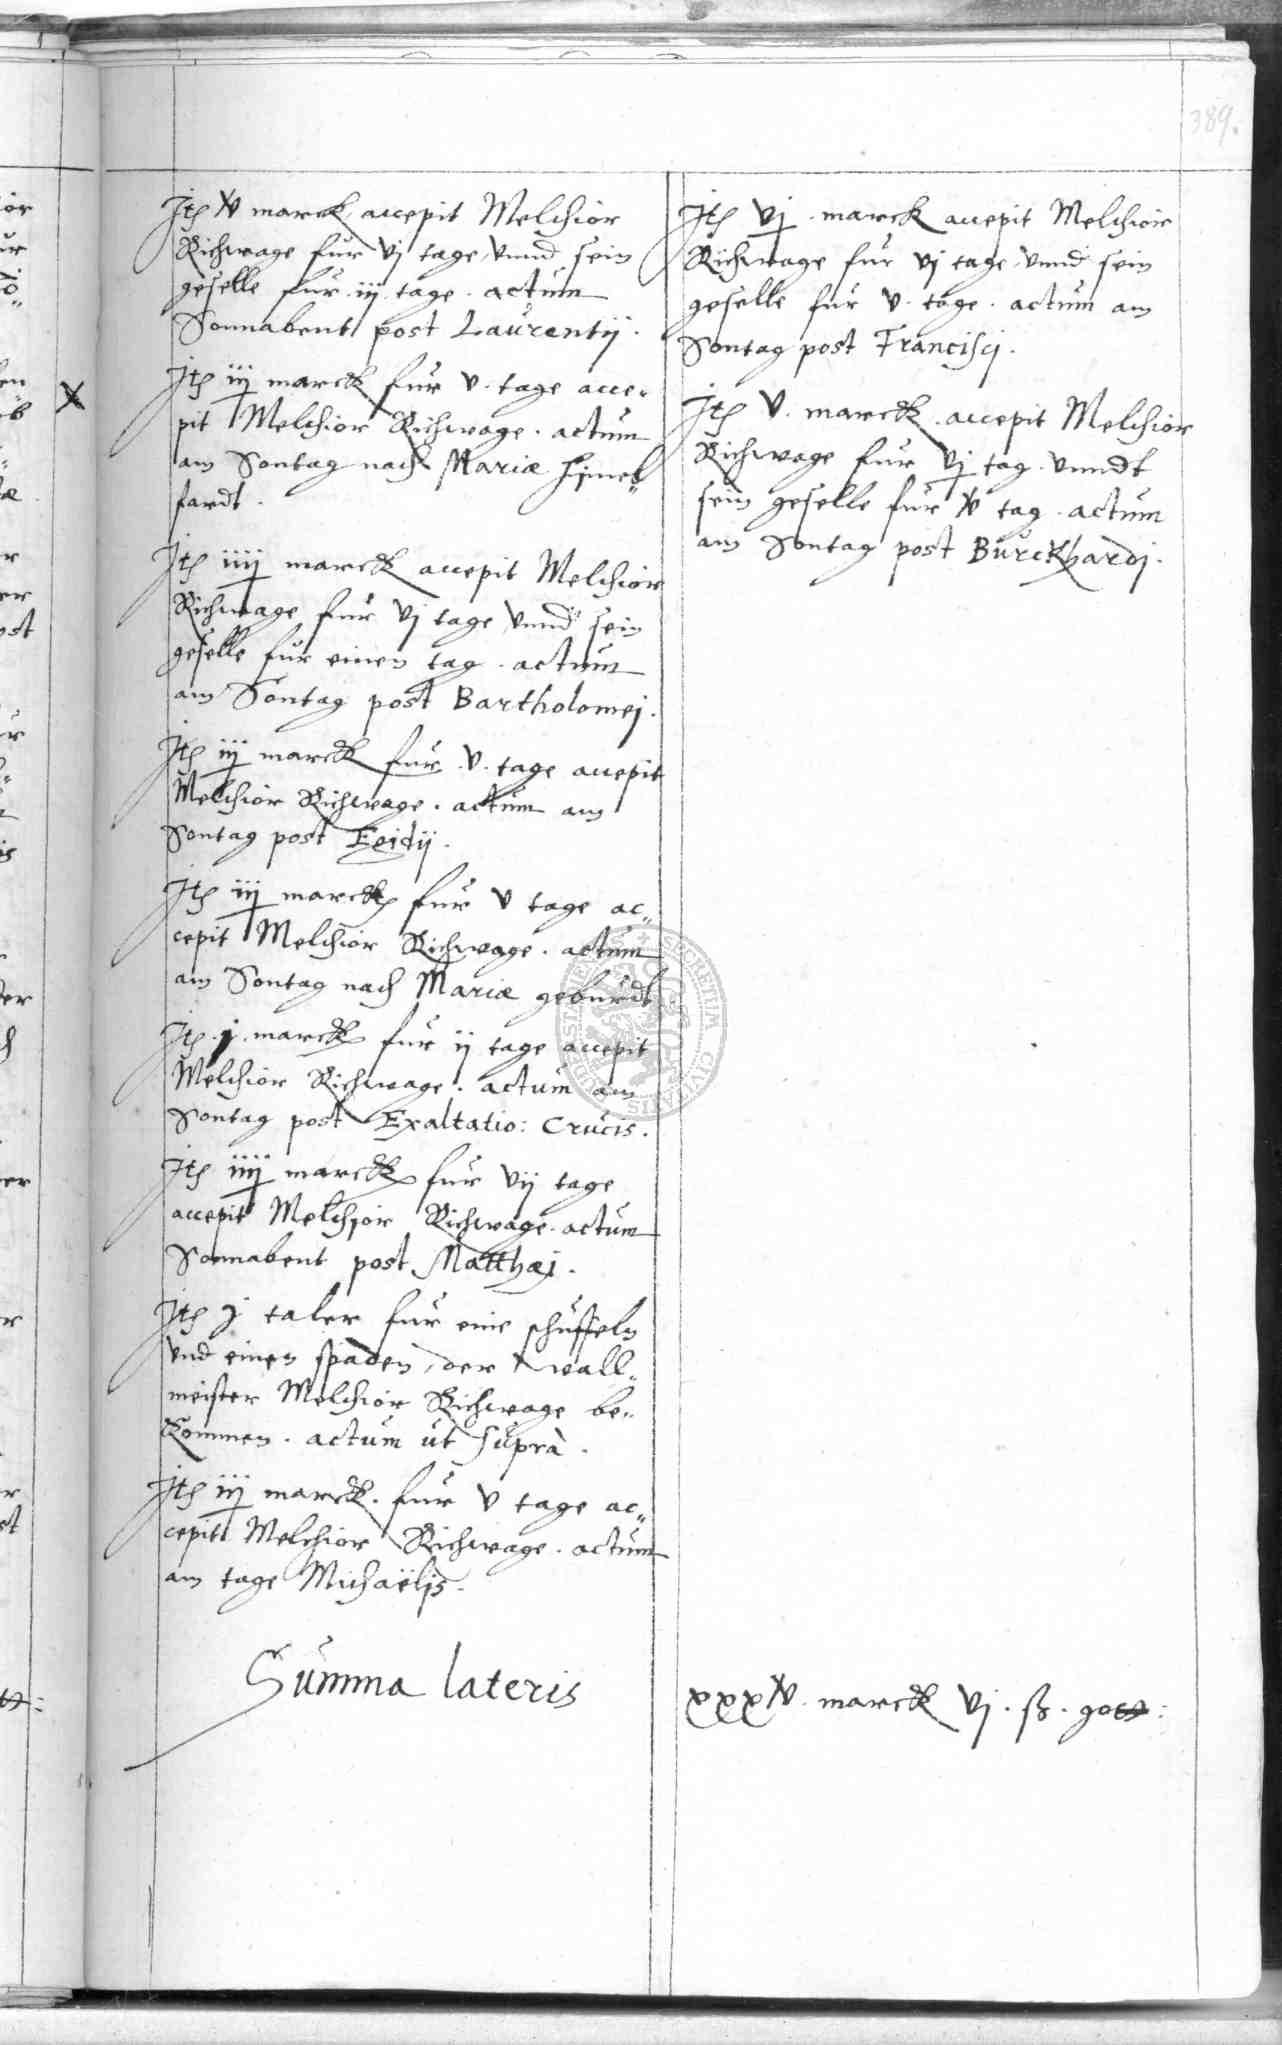 389.
Itē iv marck accepit Melchior
Richwage fur vj tage, vnnd sein
geselle fur iij tage. actum
Sonnabent post Laurentij.
Itē iij marck fur v. tage acce-
pit Melchior Richwage. actum
am Sontag nach Mariæ Hymel-
fardt.
Itē iiij marck accepit Melchior
Richwage fur vj tage, vnnd sein
geselle fur einen tag. actum
am Sontag post Bartholomej.
Itē iij marck fur v. tage accepit
Melchior Richwage. actum am
Sontag post Egidij.
Itē iij marck fur v tage ac-
cepit Melchior Richwage. actum
am Sontag nach Mariæ geburdt
Itē j. marck fur ij tage accepit
Melchior Richwage. actum am
Sontag post Exaltatio: Crucis.
Itē iiij marck fur vij tage
accepit Melchior Richwage. actum
Sonnabent post Matthæj.
Itē j taler fur eine schuffeln
vnd einen spaden, der wall-
meister Melchior Richwage be-
kommen. actum ut suprà.
Itē iij marck. fur v tage ac-
cepit Melchior Richwage. actum
am tage Michaëlis.
Summa lateris
Itē vj. marck accepit Melchior
Richwage fur vj tage, vnnd sein
geselle fur v. tage. actum am
Sontag post Francisci.
Itē v. marck. accepit Melchior
Richwage fur vj tag. vnndt
sein geselle fur iv tag. actum
am Sontag post Burckhardj.
xxxiv. marck vj. ß.
SECRETUM CIVITATIS